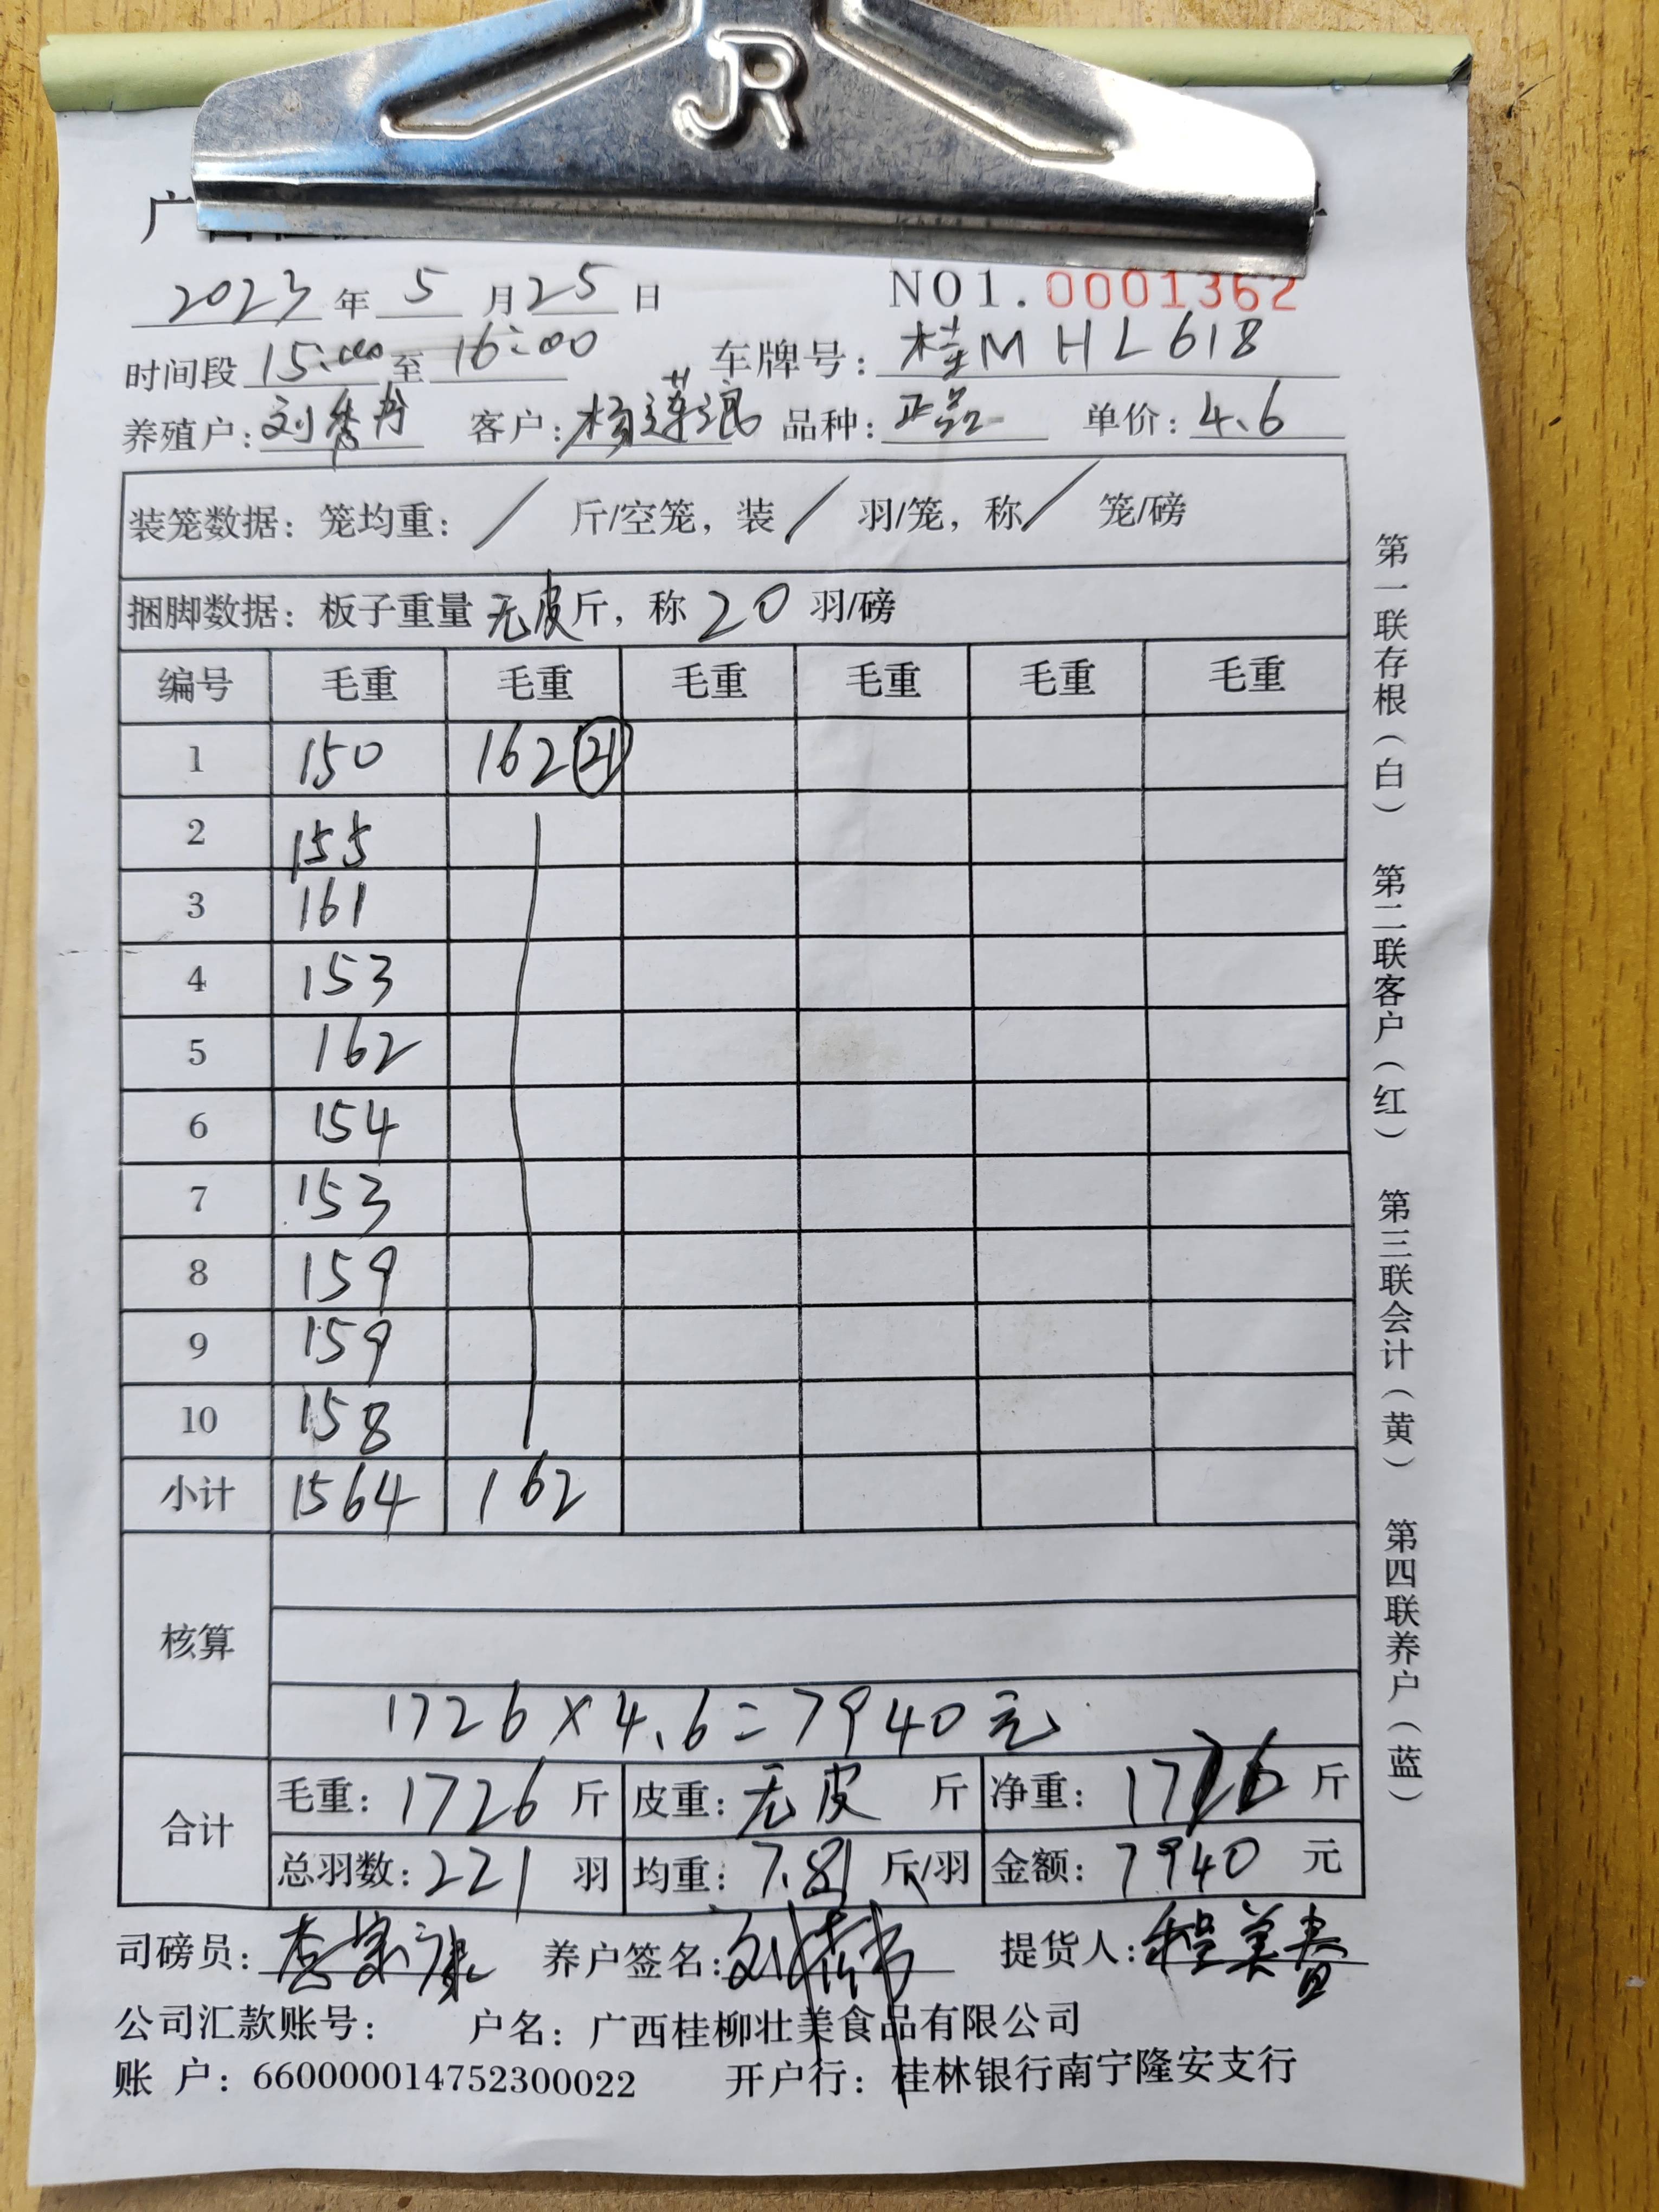 JR
广
2023年 5 月25 日 NO1.0001362
时间段 15:00 至 16:00 车牌号: 桂M HL618
养殖户: 刘秀丹 客户: 杨莲浪 品种: 正品 单价: 4.6
装笼数据: 笼均重: / 斤/空笼, 装 / 羽/笼, 称 / 笼/磅
捆脚数据: 板子重量 无皮斤, 称 20 羽/磅
编号 毛重 毛重 毛重 毛重 毛重 毛重
1 150 162 21
2 155
3 161
4 153
5 162
6 154
7 153
8 159
9 159
10 158
小计 1564 162
核算
1726×4.6=7940元
合计
毛重: 1726 斤 皮重: 无皮 斤 净重: 1726 斤
总羽数: 221 羽 均重: 7.81 斤/羽 金额: 7940 元
司磅员: 养户签名: 提货人: 程美春
公司汇款账号: 户名: 广西桂柳壮美食品有限公司
账 户: 660000014752300022 开户行: 桂林银行南宁隆安支行
第一联存根(白) 第二联客户(红) 第三联会计(黄) 第四联养户(蓝)